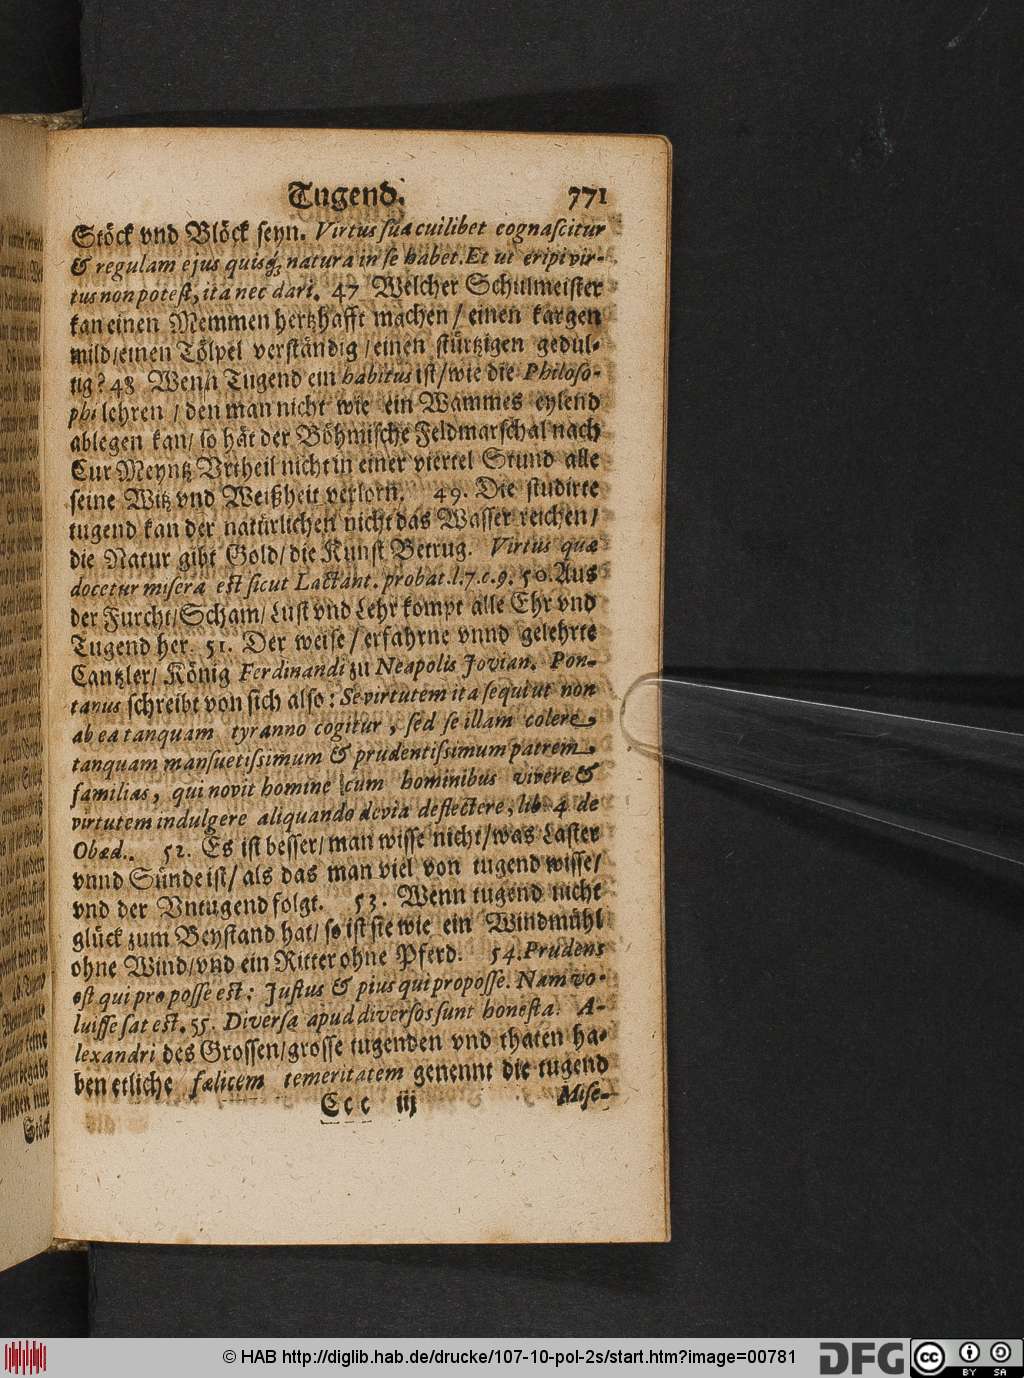 Tugend. 771
Stöck vnd Blöck seyn. Virtus sua cuilibet cognascitur
& regulam ejus quisq; natura in se habet. Et ut eripi vir-
tus non potest, ita nec dari. 47 Welcher Schulmeister
kan einen Memmen hertzhafft machen / einen kargen
mild/einen Tölpel verständig /einen stürtzigen gedul-
tig? 48 Wenn Tugend ein habitus ist/wie die Philoso-
phi lehren / den man nicht wie ein Wammes eylend
ablegen kan/ so hät der Böhmische Feldmarschal nach
Cur Meyntz Vrtheil nicht in einer viertel Stund alle
seine Witz vnd Weißheit verlorn. 49. Die studirte
tugend kan der natürlichen nicht das Wasser reichen/
die Natur gibt Gold/die Kunst Betrug. Virtus quæ
docetur misera est sicut Lactant. probat. l. 7. c. 9. 50. Aus
der Furcht/Scham/Lust vnd Lehr kompt alle Ehr vnd
Tugend her. 51. Der weise / erfahrne vnnd gelehrte
Cantzler/ König Ferdinandi zu Neapolis Jovian. Pon-
tanus schreibt von sich also: Se virtutem ita sequi ut non
ab ea tanquam tyranno cogitur, sed se illam colere,
tanquam mansuetissimum & prudentissimum patrem,
familias, qui novit homine cum hominibus vivere &
virtutem indulgere aliquando devia deflectere, lib. 4 de
Obæd. 52. Es ist besser/man wisse nicht/was Laster
vnnd Sünde ist/ als das man viel von tugend wisse/
vnd der Vntugend folgt. 53. Wenn tugend nicht
glück zum Beystand hat/ so ist sie wie ein Windmühl
ohne Wind/vnd ein Ritter ohne Pferd. 54. Prudens
est qui pro posse est: Justus & pius qui pro posse. Nam vo-
luisse sat est. 55. Diversa apud diversos sunt honesta. A-
lexandri des Grossen/grosse tugenden vnd thaten ha-
ben etliche fælicem temeritatem genennt die tugend
Ccc iij Mise-
Stöck
© HAB http://diglib.hab.de/drucke/107-10-pol-2s/start.htm?image=00781
DFG
cc BY SA